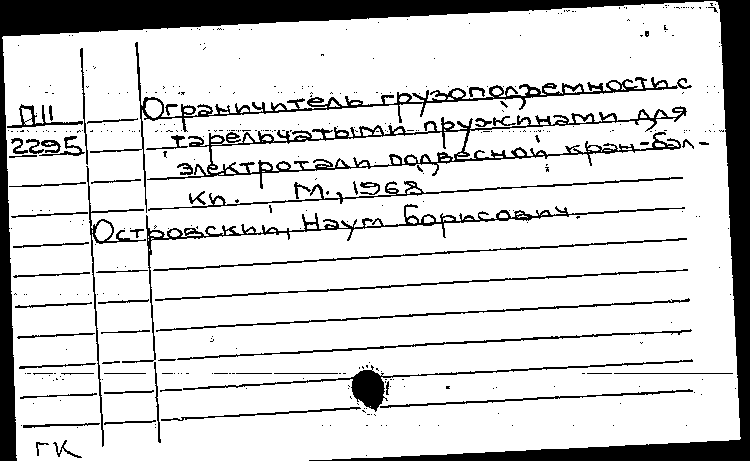 П11 Ограничитель грузоподъемности с
2295 тарельчатыми пружинами для
электротали подвесной кран-бал-
ки. М., 1968
Островский, Наум Борисович.
ГК